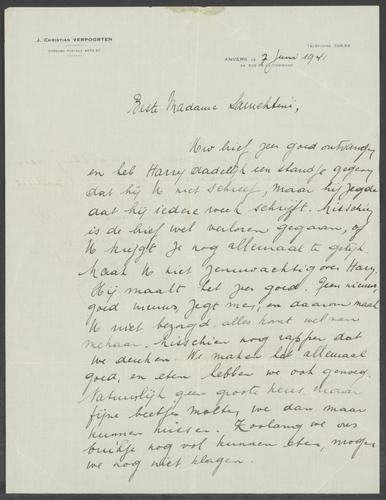 J. Christian VERPOORTEN
TÉLÉPHONE
ANVERS, LE 7 Juni 1941
Beste Madame
Uw brief zeer goed ontvangen
en heb Harry dadelijk een standje gegeven
dat hij U niet schreef, maar hij zegde
dat hij iedere week schrijft. Misschien
is de brief wel verloren gegaan, of
U krijgt ze nog allemaal te gelijk.
Maak U niet zenuwachtig over Harry.
Hij maakt het zeer goed. Geen nieuws,
goed nieuws, zegt men, en daarom maak
U niet bezorgd, alles komt wel van
mekaar. Misschien nog rapper dat
we denken. We maken het allemaal
goed, en eten hebben we ook genoeg.
Natuurlijk geen groote keus, maar
fijne beetjes moeten we dan maar
kunnen missen. Zoolang we ons
buikje nog vol kunnen eten, mogen
we nog niet klagen.